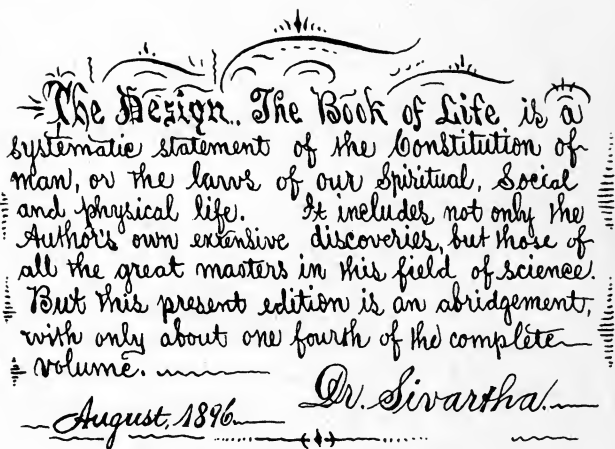 The Design.. The Book of Life is a
systematic statement of the Constitution of
man, or the laws of our Spiritual, Social
and physical life. It includes not only the
Author's own extensive discoveries, but those of
all the great masters in this field of science.
But this present edition is an abridgement,
with only about one fourth of the complete
volume.
Dr. Sivartha.
August, 1896.